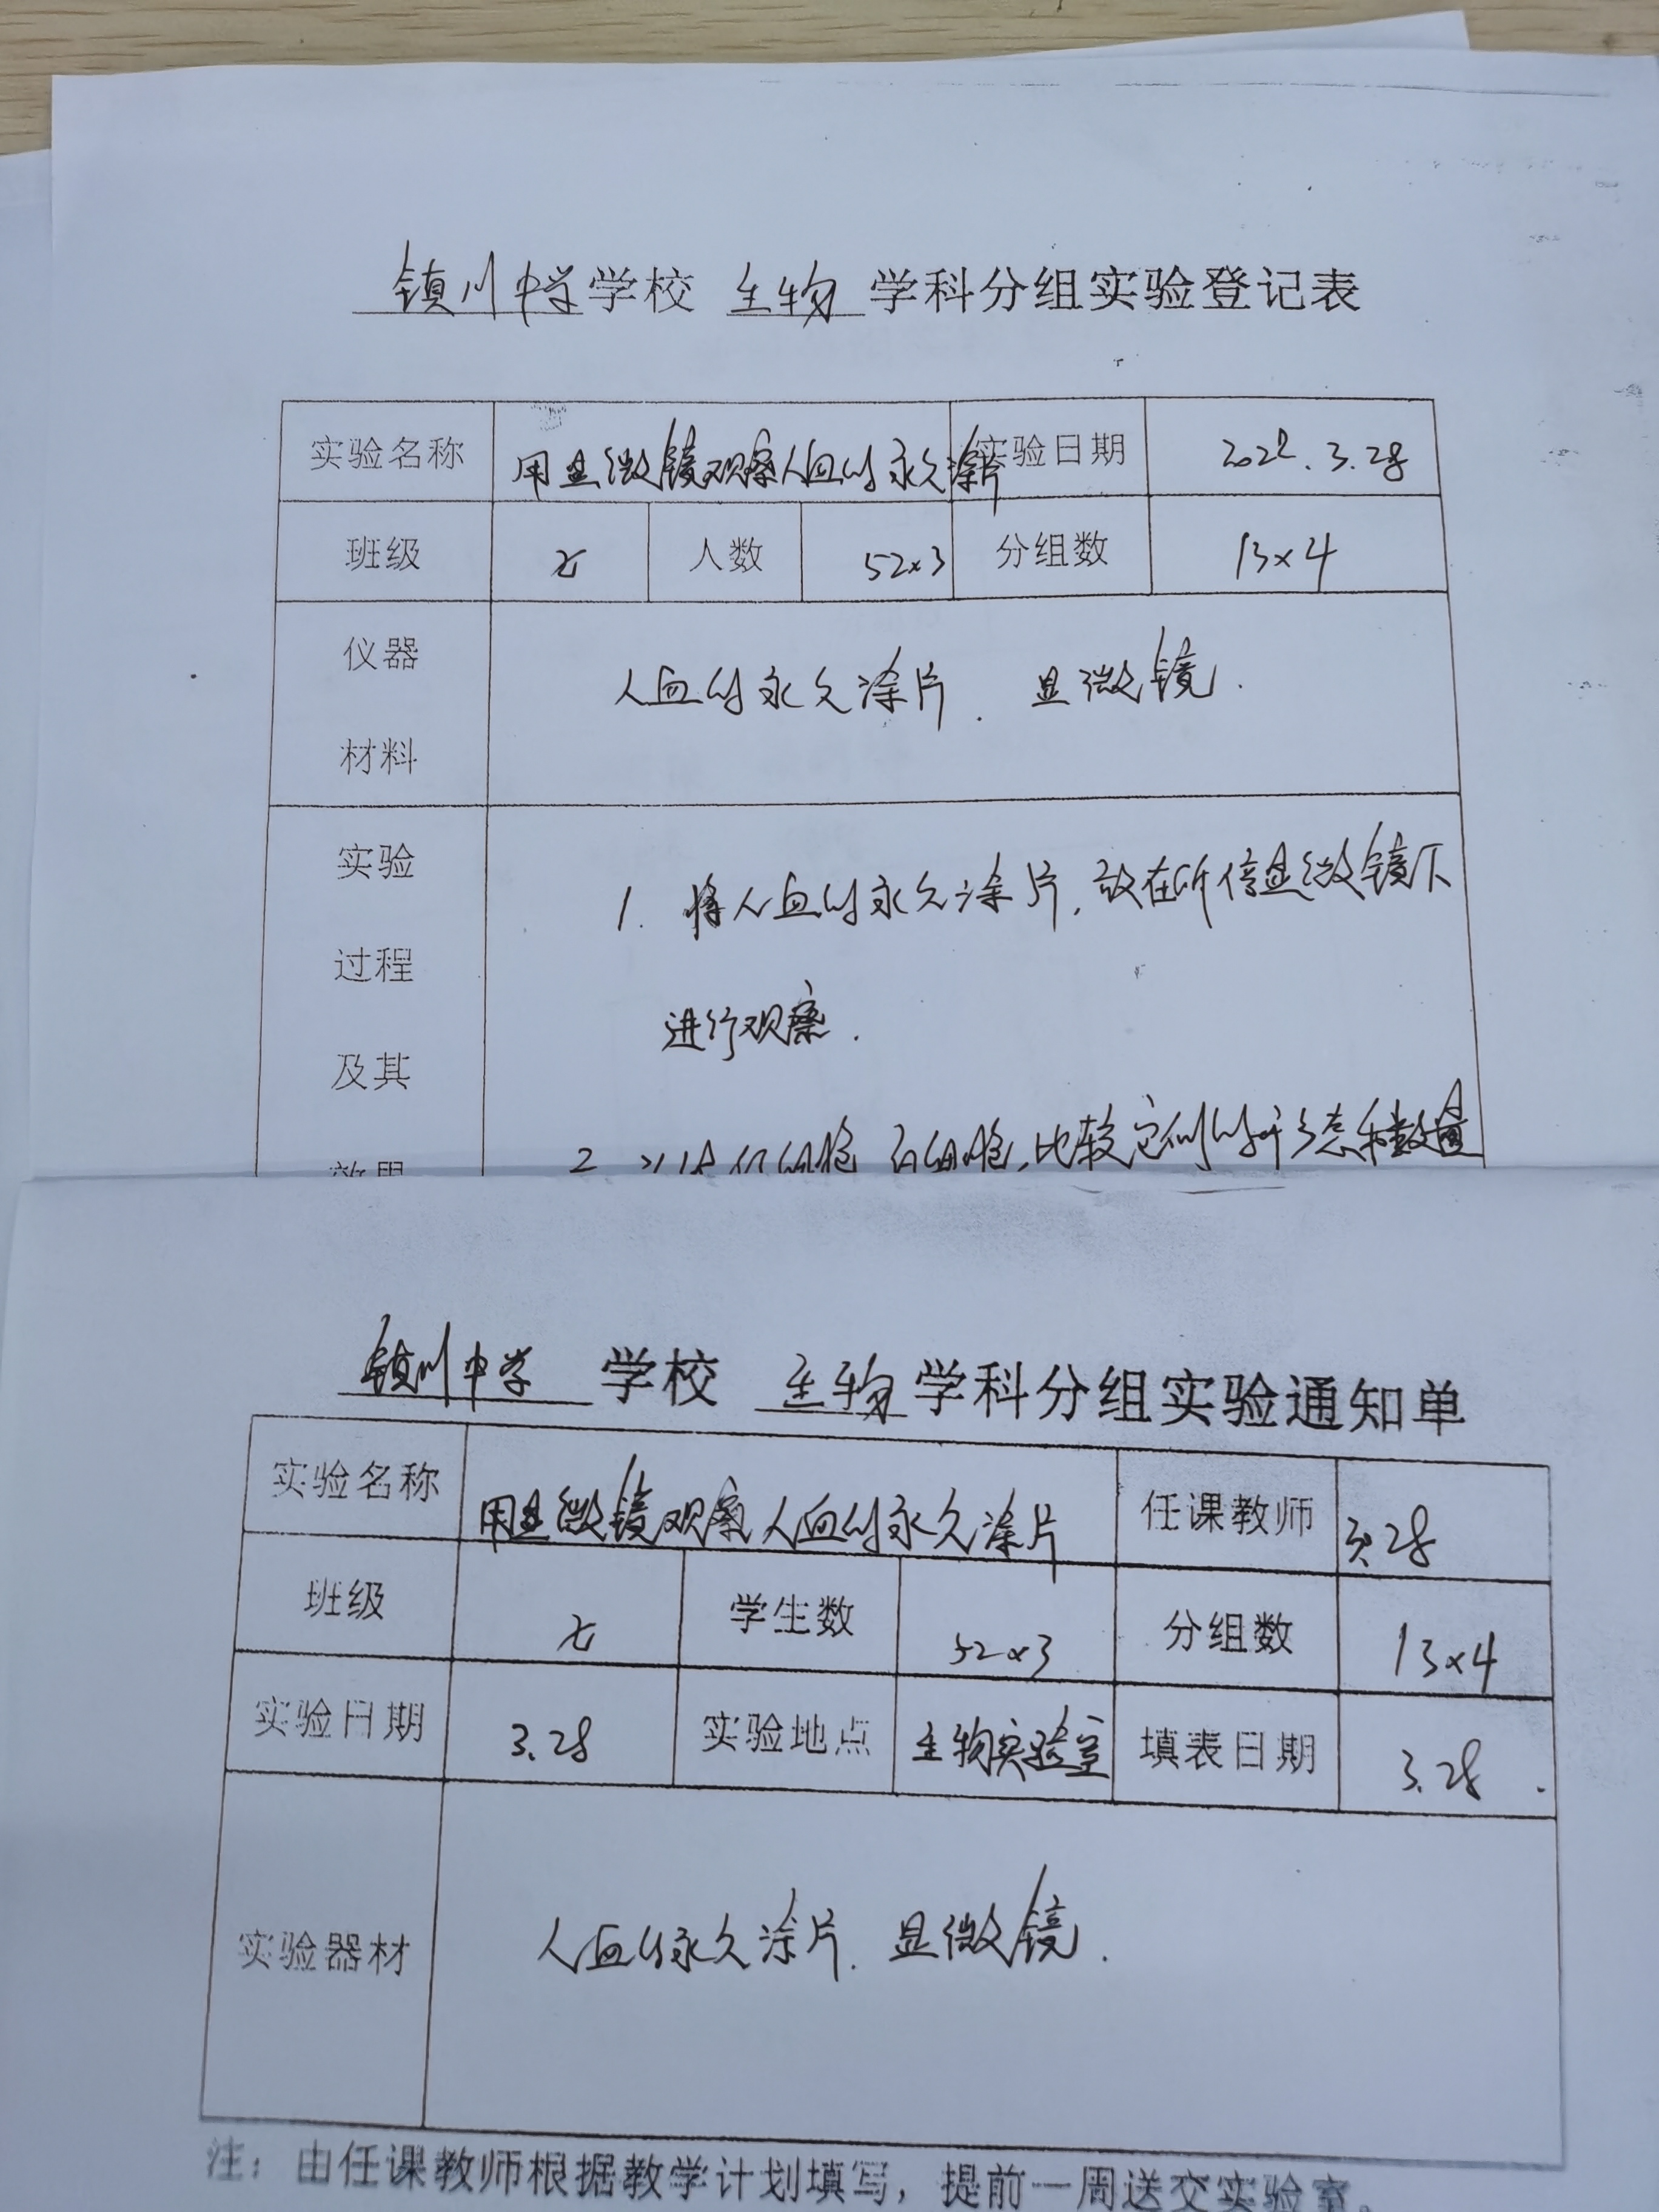 镇川中学学校 生物 学科分组实验登记表
实验名称 用显微镜观察人血的永久涂片 实验日期 2022.3.28
班级 七 人数 52×3 分组数 13×4
仪器
人血的永久涂片. 显微镜.
材料
实验
1. 将人血的永久涂片,放在低倍显微镜下
过程
进行观察.
及其
2. 认识红细胞 白细胞,比较它们的形态和数量
效果
镇川中学 学校 生物 学科分组实验通知单
实验名称 用显微镜观察人血的永久涂片 任课教师 28
班级 七 学生数 52×3 分组数 13×4
实验日期 3.28 实验地点 生物实验室 填表日期 3.28.
实验器材 人血的永久涂片. 显微镜.
注：由任课教师根据教学计划填写，提前一周送交实验室。